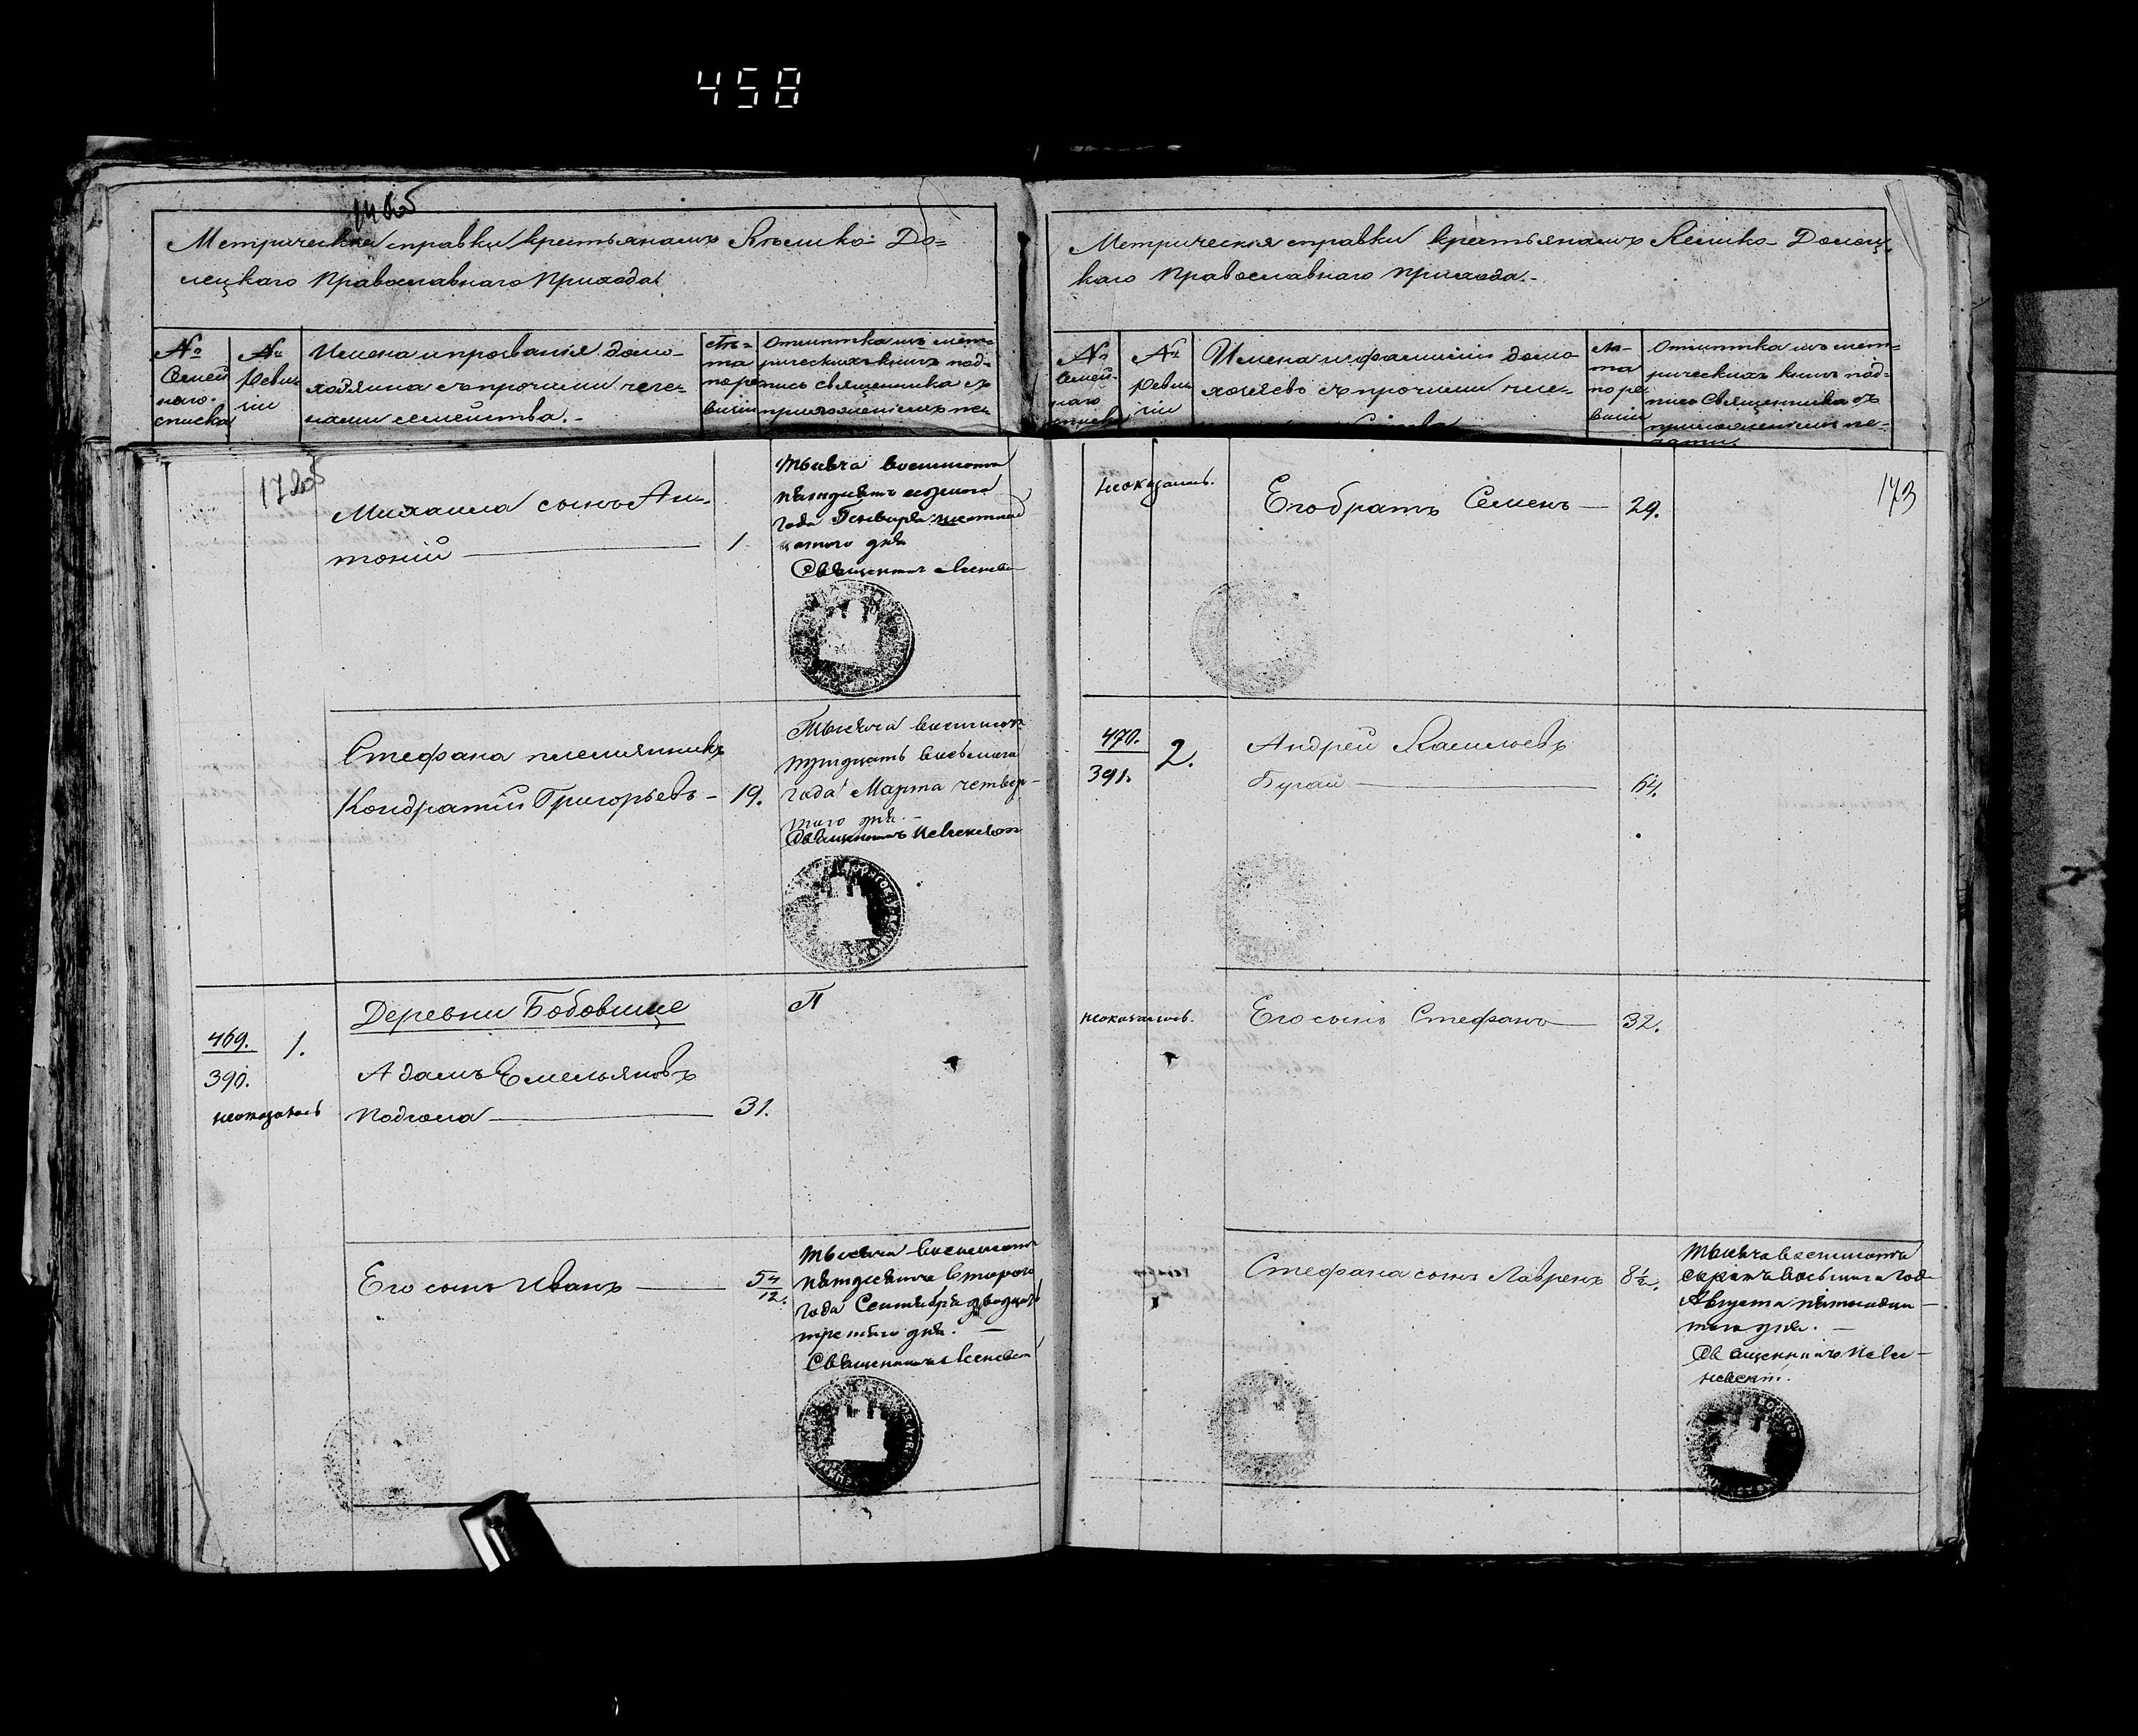 458
Метрическія справки крестьянамъ Велико-До=
лецкаго Православнаго Прихода
№
Семей
наго
списка
№
Реви
зіи
Имена и прозванія домо-
хозяина съ прочими чле-
нами семейства.-
Лѣ=
та
по ре
визіи
Отмѣтка изъ мет-
рическихъ книгъ под-
пись священника съ
приложеніемъ пе-
172об
Михаила сынъ Ан-
тоній
1.
Тысяча восемьсотъ
пятьдесятъ седьмого
года Генваря
цатого дня
Священникъ
Стефана племянникъ
Кондратій Григорьевъ - 19.
Тысяча восемьсотъ
тридцать восьмого
года Марта четвер-
таго дня.-
Священникъ
469.
390.
неоказалось
1.
Деревни Бобовище
П
Адамъ Емельяновъ
31.
Его сынъ Иванъ
5 4/12.
Тысяча восемьсотъ
пятьдесятъ второго
года Сентября двадцать
третьяго дня. —
Священникъ
Метрическія справки крестьянамъ Велико-Долец
каго Православнаго прихода.-
№
Семей-
наго
списка
№
Реви
зіи
Имена и фамиліи домо
хозяевъ съ прочими чле-
Лѣ-
та
по ре
визіи
Отмѣтка изъ мет-
рическихъ книгъ под=
пись Священника съ
приложеніемъ пе-
чати
173
неоказалось.
Его братъ Семенъ — 29.
470.
391.
2.
Андрей Васильевъ
Бугай — 64.
неоказалось.
Его сынъ Стефанъ — 32.
Стефана сынъ Лавренъ 8½.
Тысяча восемьсотъ
сорокъ восьмого года
Августа пятнадца-
таго дня. —
Священникъ